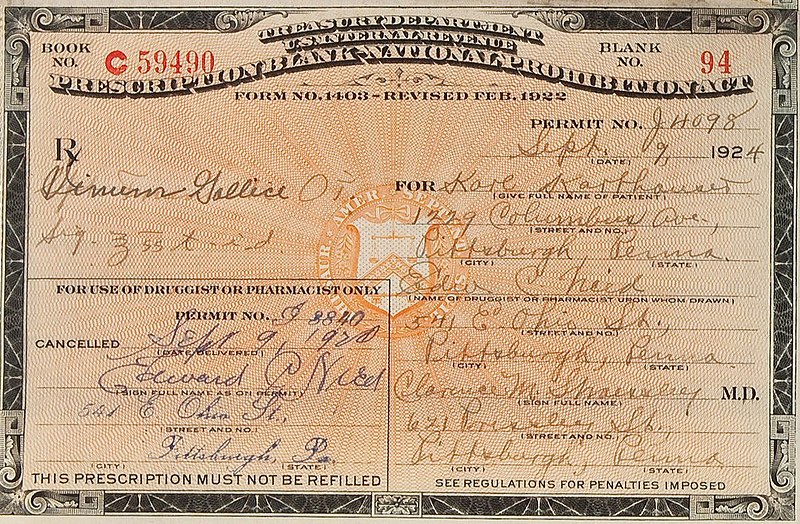 TREASURY DEPARTMENT
U.S. INTERNAL REVENUE
PRESCRIPTION BLANK - NATIONAL PROHIBITION ACT
FORM NO. 1403 - REVISED FEB. 1922
BOOK NO. C 59490
BLANK NO. 94
PERMIT NO. J 4098
Sept. 9, 1924
(DATE)
Rx
Vinum Gallice O i
Sig - ℥ss t-i-d.
FOR Karl
(GIVE FULL NAME OF PATIENT)
1229 Columbus Ave.,
(STREET AND NO.)
Pittsburgh, Penna.
(CITY) (STATE)
Edw C. Nied
(NAME OF DRUGGIST OR PHARMACIST UPON WHOM DRAWN)
541 E. Ohio St.,
(STREET AND NO.)
Pittsburgh, Penna.
(CITY) (STATE)
Clarence M. M.D.
(SIGN FULL NAME)
621 Pressley St.
(STREET AND NO.)
Pittsburgh, Penna
(CITY) (STATE)
SEE REGULATIONS FOR PENALTIES IMPOSED
FOR USE OF DRUGGIST OR PHARMACIST ONLY
PERMIT NO. J 3840
CANCELLED Sept 9, 1924
(DATE DELIVERED)
Edward C Nied
(SIGN FULL NAME AS ON PERMIT)
541 E Ohio St.,
(STREET AND NO.)
Pittsburgh, Pa.
(CITY) (STATE)
THIS PRESCRIPTION MUST NOT BE REFILLED